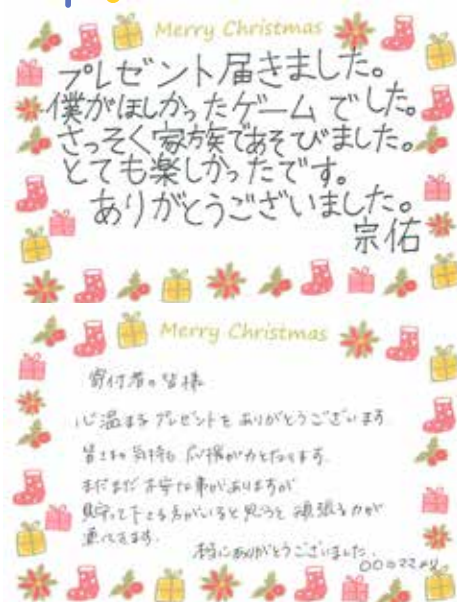 Merry Christmas
プレゼント届きました。
僕がほしかったゲームでした。
さっそく家族であそびました。
とても楽しかったです。
ありがとうございました。
宗佑
Merry Christmas
寄付者の皆様
心温まるプレゼントをありがとうございます
皆さまの気持ち 応援が力となります。
まだまだ不安な事がありますが
見守って下さる方がいると思うと頑張る力が
湧いてきます。
本当にありがとうございました。
○○のママより